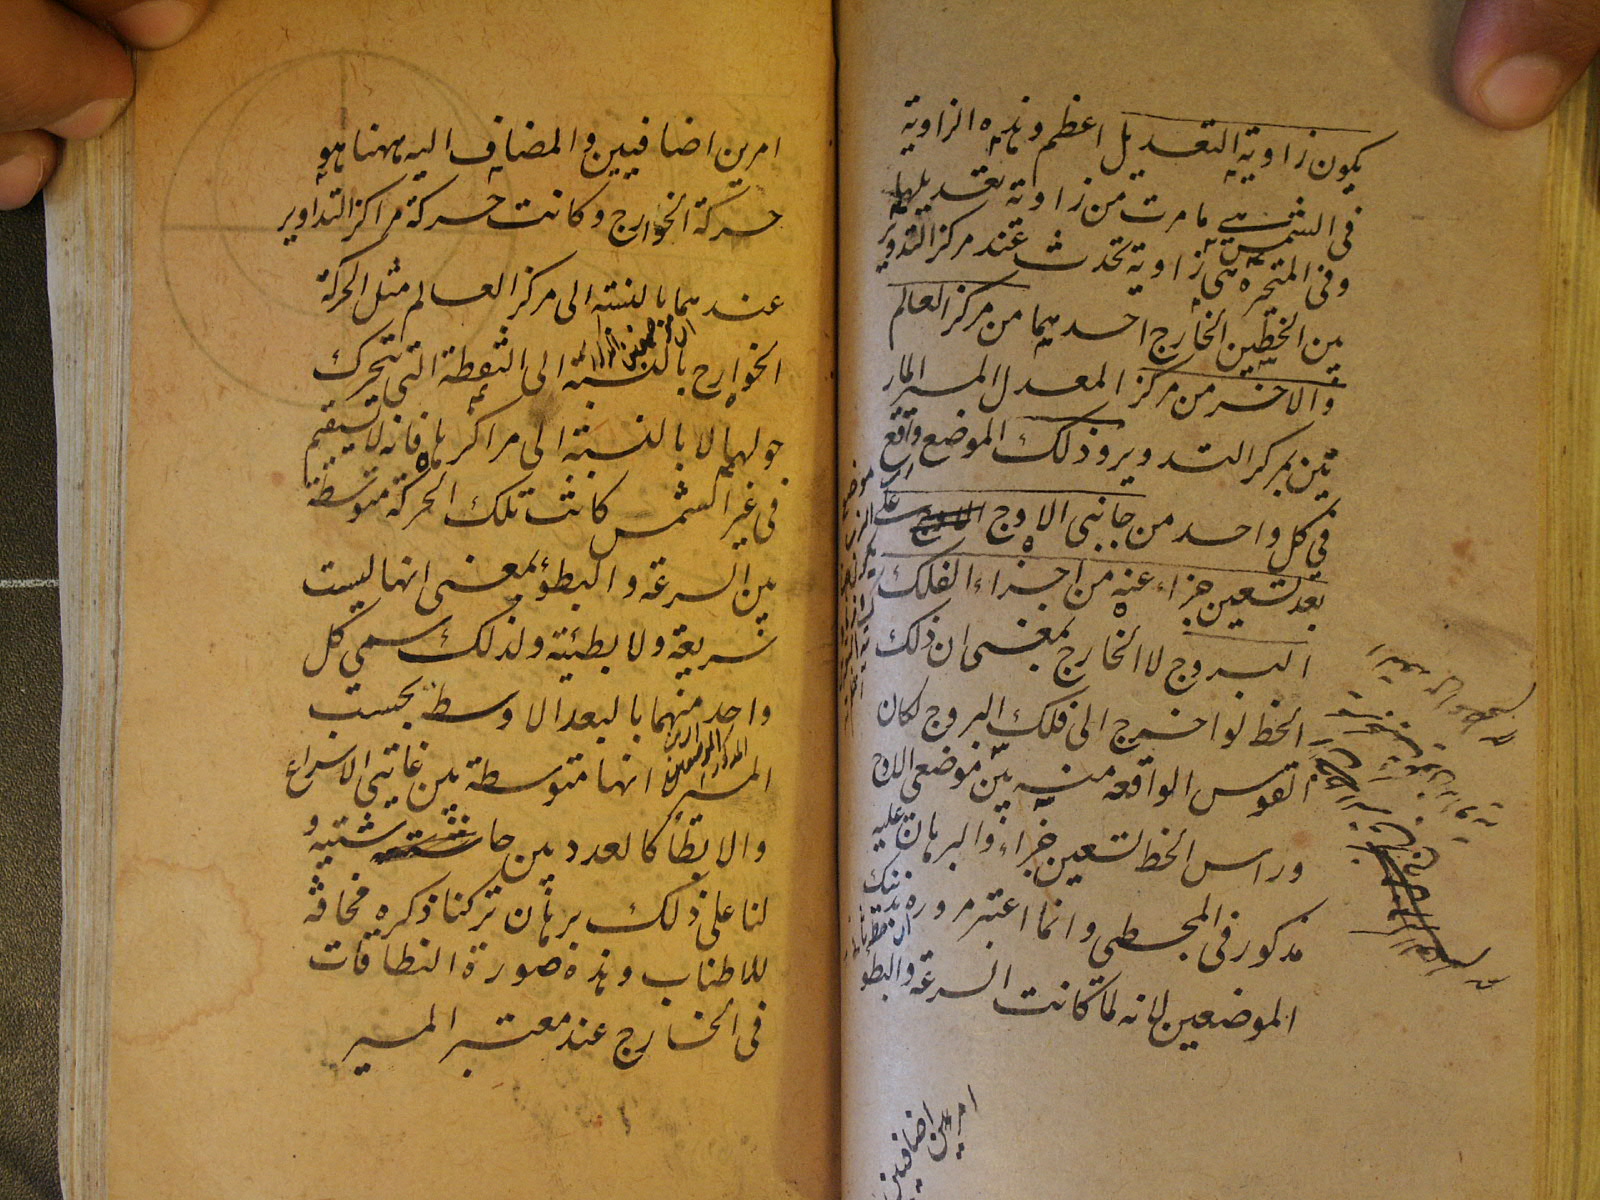 يكون زاوية التعديل اعظم وهذه الزاوية
فى الشمس هى ما مرت من زاوية تعديلها
وفى المتحيرة هى زاوية تحدث عند مركز التدوير
بين الخطين الخارج احدهما من مركز العالم
والاخر من مركز المعدل المسير المار
ين بمركز التدوير وذلك الموضع واقع
فى كل واحد من جانبى الاوج على
بعد تسعين جزاء عنه من اجزاء الفلك
البروج لا الخارج بمعنى ان ذلك
الخط لو اخرج الى فلك البروج لكان
القوس الواقعه منه بين موضعى الاوج
وراس الخط تسعين جزاء والبرهان عليه
مذكور فى المجسطى وانما اعتبر مروره بذينك
الموضعين لانه لما كانت السرعة والبطو
امرين اضافيين
امرين اضافيين والمضاف اليه ههنا هو
حركة الخوارج وكانت حركة مراكز التداوير
عندهما بالنسبة الى مركز العالم مثل الحركة
الخوارج بالنسبة الى النقطة التى تتحرك
حولها لا بالنسبة الى مراكزها فانه لا يستقيم
فى غير الشمس كانت تلك الحركة متوسطة
بين السرعة والبطؤ بمعنى انها ليست
سريعة ولا بطئية ولذلك سمى كل
واحد منهما بالبعد الاوسط بحسب
المسير انها متوسطة بين غايتى الاسراع
والابطأ كالعدد بين حاشيتيه و
لنا على ذلك برهان تركنا ذكره مخافة
للاطناب وهذه صورة النطاقات
فى الخارج عند معتبر المسير